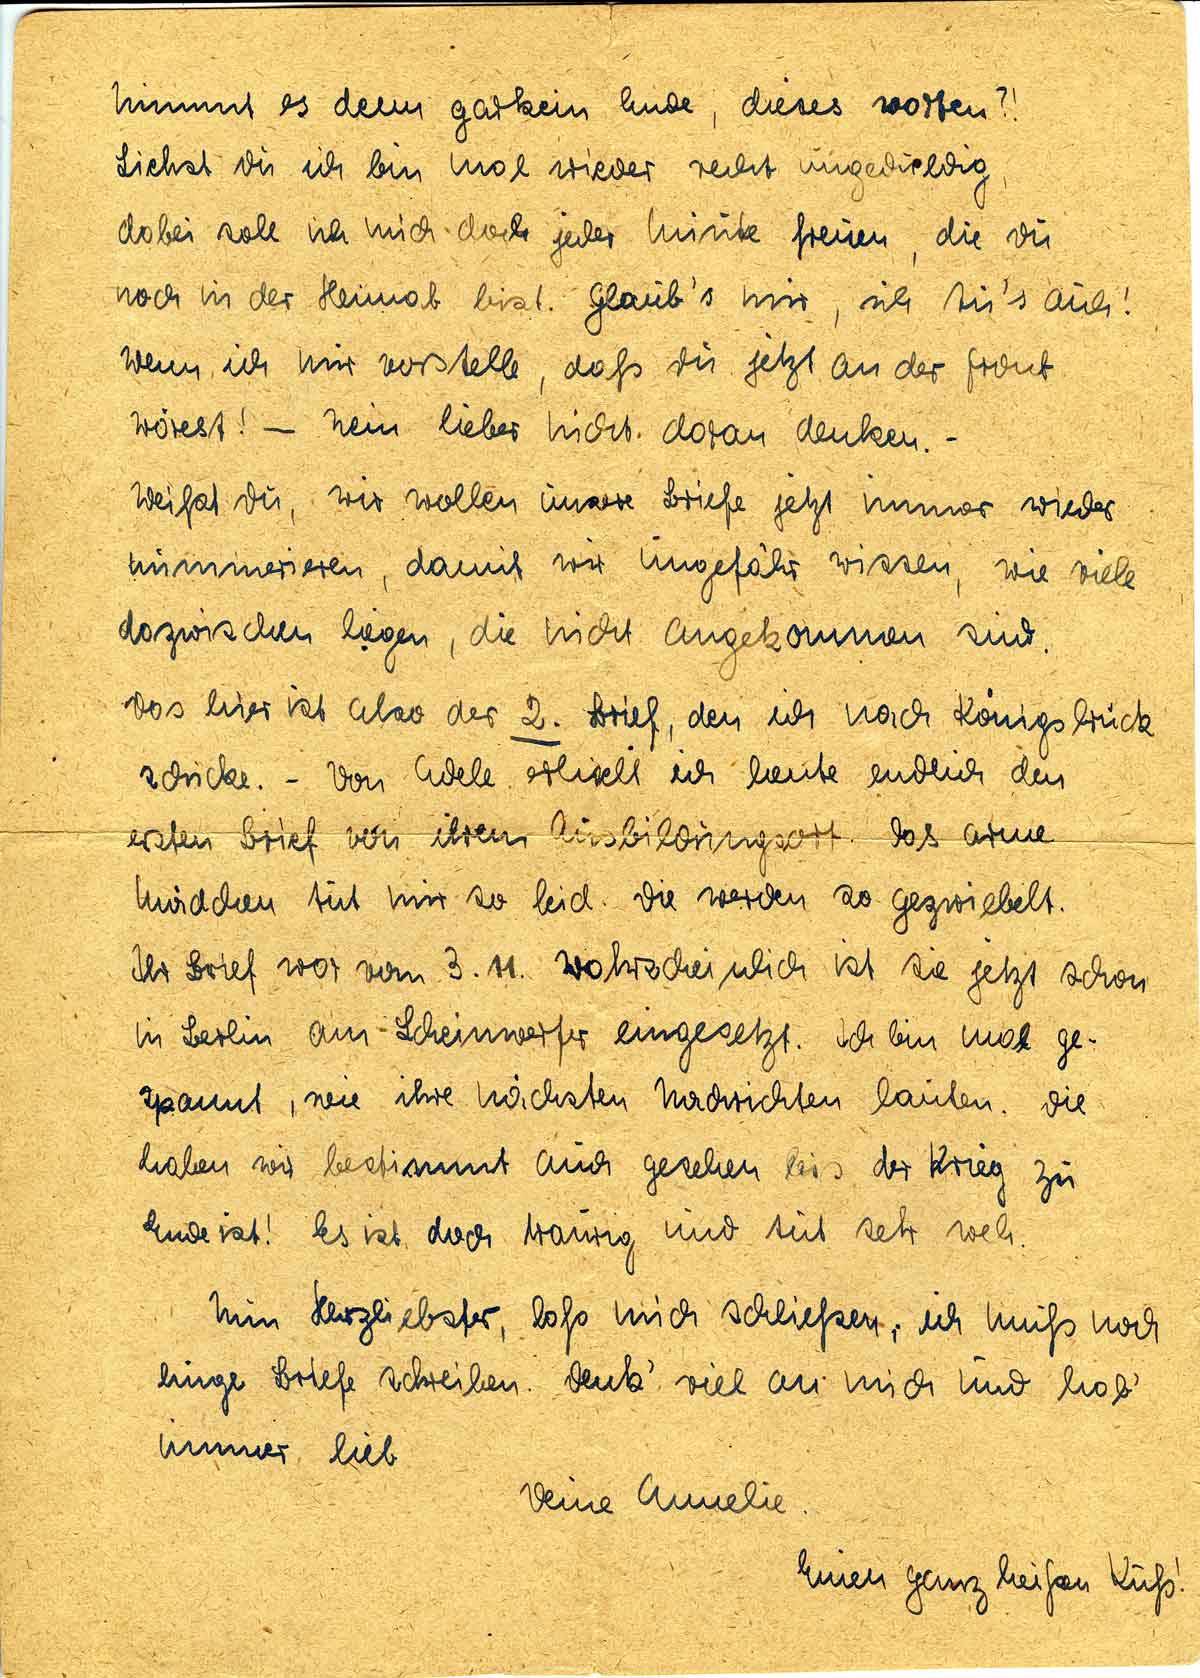 Nimmt es denn garkein Ende, dieses warten?!
Siehst Du ich bin mal wieder recht ungeduldig,
dabei soll ich mich doch jeder Minute freuen, die Du
noch in der Heimat bist. Glaub's mir, ich tu's auch!
Wenn ich mir vorstelle, daß Du jetzt an der Front
wärest! – Nein lieber nicht daran denken. –
Weißt Du, wir wollen unsere Briefe jetzt immer wieder
nummerieren, damit wir ungefähr wissen, wie viele
dazwischen liegen, die nicht angekommen sind.
Das hier ist also der 2. Brief, den ich nach Königsbrück
schicke. – Von Adele erhielt ich heute endlich den
ersten Brief von ihrem Ausbildungsort. Das arme
Mädchen tut mir so leid. Die werden so gezwiebelt.
Ihr Brief war vom 3.11. Wahrscheinlich ist sie jetzt schon
in Berlin am Scheinwerfer eingesetzt. Ich bin mal ge-
spannt, wie ihre nächsten Nachrichten lauten. Die
haben wir bestimmt auch gesehen bis der Krieg zu
Ende ist! Es ist doch traurig und tut sehr weh.
Mein Herzliebster, laß mich schließen, ich muß noch
einige Briefe schreiben. Denk' viel an mich und hab'
immer lieb
Deine Annelie.
Einen ganz heißen Kuß!